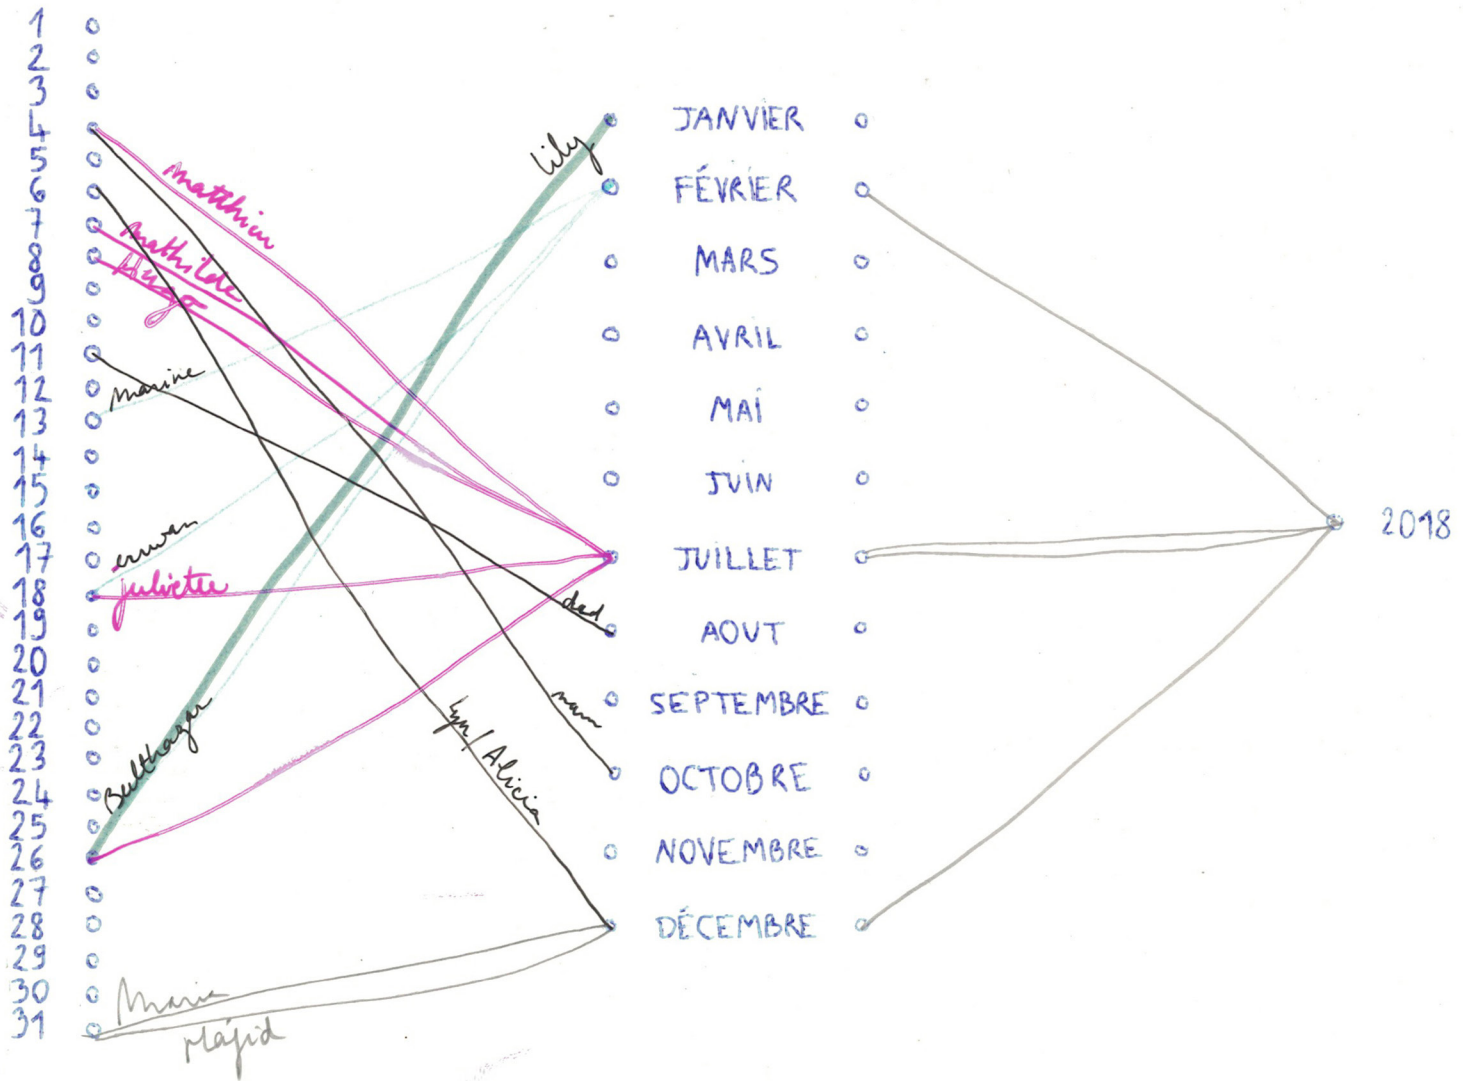 1
2
3
4
5
6
7
8
9
10
11
12
13
14
15
16
17
18
19
20
21
22
23
24
25
26
27
28
29
30
31
Matthieu
Mathilde
Hugo
Marine
erwan
juliette
Balthazar
Maria
Majid
Lily
dad
mam
Lyn/Alicia
JANVIER
FÉVRIER
MARS
AVRIL
MAI
JUIN
JUILLET
AOUT
SEPTEMBRE
OCTOBRE
NOVEMBRE
DÉCEMBRE
2018